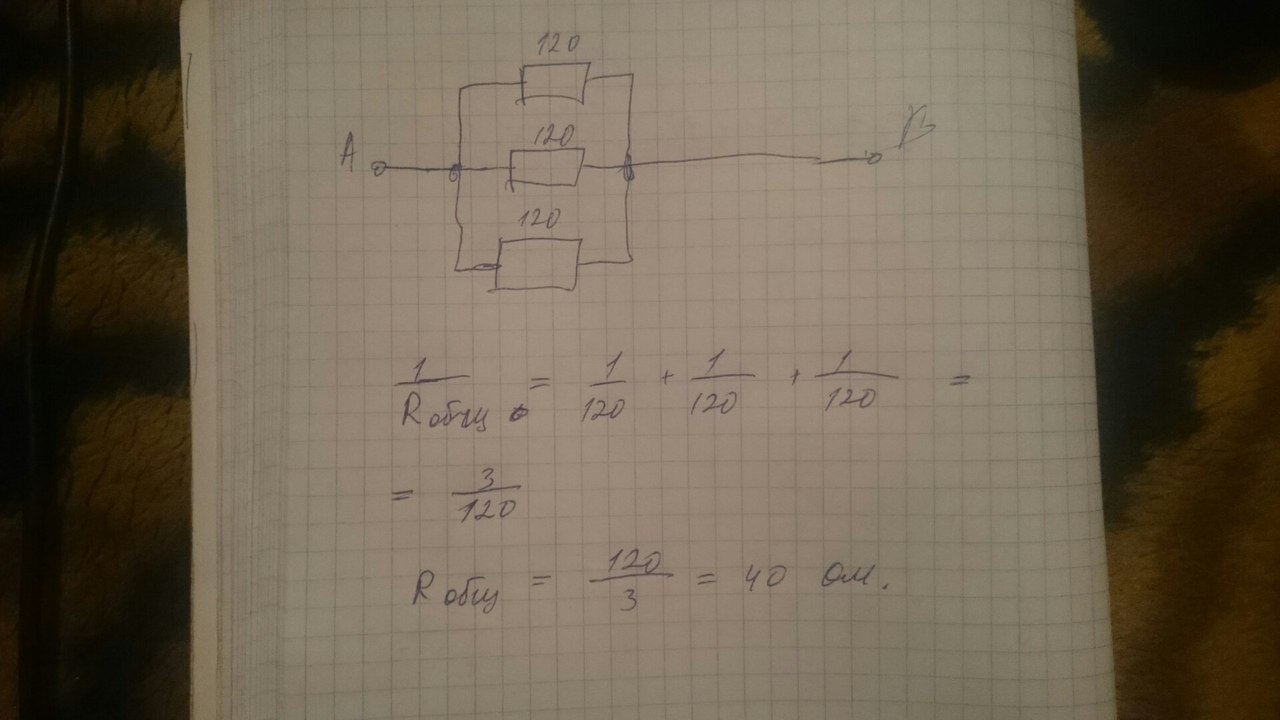 120
A 120 B
120
1/Rобщ = 1/120 + 1/120 + 1/120 =
= 3/120
Rобщ = 120/3 = 40 ом.